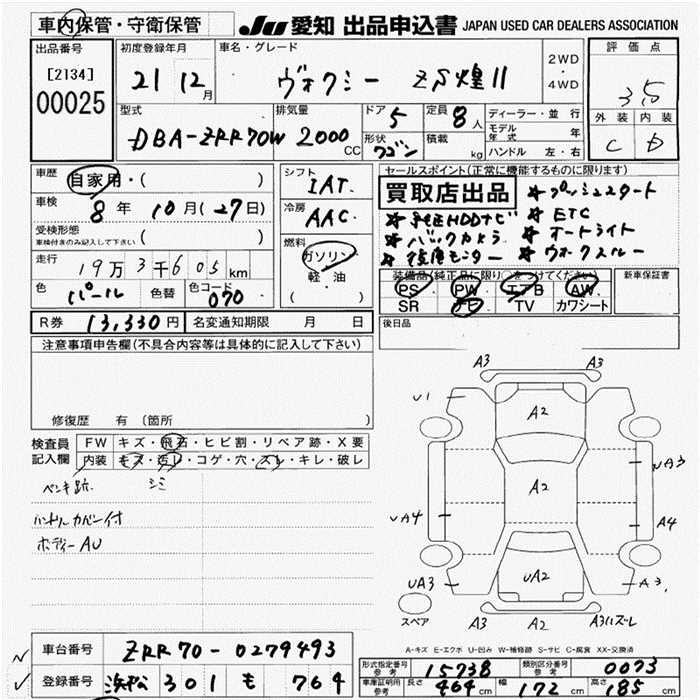 車内保管・守衛保管
JU 愛知 出品申込書 JAPAN USED CAR DEALERS ASSOCIATION
出品番号 初度登録年月 車名・グレード 評価点
[2134] 21 12月 ヴォクシー ZS煌II 2WD・4WD 3.5
00025
外装 内装
C D
型式 排気量 ドア 5 定員 8人 ディーラー・並行
DBA-ZRR70W 2000CC 形状 ワゴン 積載 kg モデル年式 年
ハンドル 左・右
車歴 自家用・( )
シフト IAT
セールスポイント(正常に機能するものに限ります)
車検 8年 10月(27日)
買取店出品 *プッシュスタート
冷房 AAC
*純正HDDナビ *ETC
受検形態 ( )
車検付きのみ記入して下さい
*バックカメラ *オートライト
*後席モニター *ウォークスルー
走行 19万3千605km
燃料 ガソリン・軽・油 ( )
装備品(純正品に限り○をつけてください) 新車保証書
色 パール 色替 色コード 070
PS PW エアB AW
SR ナビ TV カワシート
R券 13,330円 名変通知期限 月 日
後日品
注意事項申告欄(不具合内容等は具体的に記入して下さい)
修復歴 有 (箇所
検査員記入欄 FW キズ・飛石・ヒビ割・リペア跡・X要
内装 キズ・汚レ・コゲ・穴・スレ・キレ・破レ
ペンキ跡. シミ
ハンドルカバー付
ボディーAU
A3 A3
U1 A2
A2 A3
UA4 A4
UA3 UA2 A3
スペア A3 A2 A3ハズレ
A-キズ E-エクボ U-凹み W-補修跡 S-サビ C-腐食 XX-交換済
車台番号 ZRR70-0279493
登録番号 浜松 301 も 764
形式指定番号 参考 15738 類別区分番号 参考 0073
車庫証明用 参考 長さ 464cm 幅 172cm 高さ 185cm